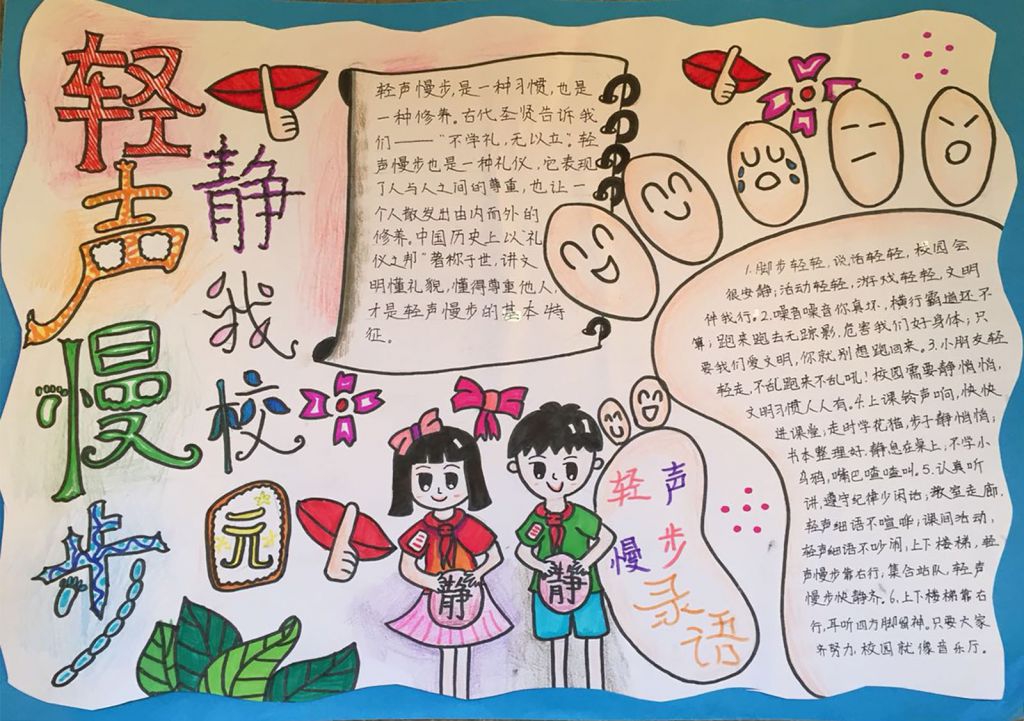 轻声慢步
静我校园
轻声慢步,是一种习惯,也是
一种修养。古代圣贤告诉我
们——“不学礼,无以立”。轻
声慢步也是一种礼仪,它表现
了人与人之间的尊重,也让一
个人散发出由内而外的
修养。中国历史上以“礼
仪之邦”著称于世,讲文
明懂礼貌,懂得尊重他人,
才是轻声慢步的基本特
征。
静
静
轻声
慢步
录语
1.脚步轻轻,说话轻轻,校园会
很安静;活动轻轻,游戏轻轻,文明
伴我行。2.噪音噪音你真坏,横行霸道坏不
算;跑来跑去无踪影,危害我们好身体;只
要我们爱文明,你就别想跑回来。3.小朋友轻
轻走,不乱跑来不乱吼!校园需要静悄悄,
文明习惯人人有。4.上课铃声响,快快
进课堂;走时学花猫,步子静悄悄;
书本整理好,静息在桌上,不学小
乌鸦,嘴巴喳喳叫。5.认真听
讲,遵守纪律少闲话;教室走廊,
轻声细语不喧哗;课间活动,
轻声细语不吵闹,上下楼梯,轻
声慢步靠右行,集合站队,轻声
慢步快静齐。6.上下楼梯靠右
行,耳听四方脚留神。只要大家
齐努力,校园就像音乐厅。